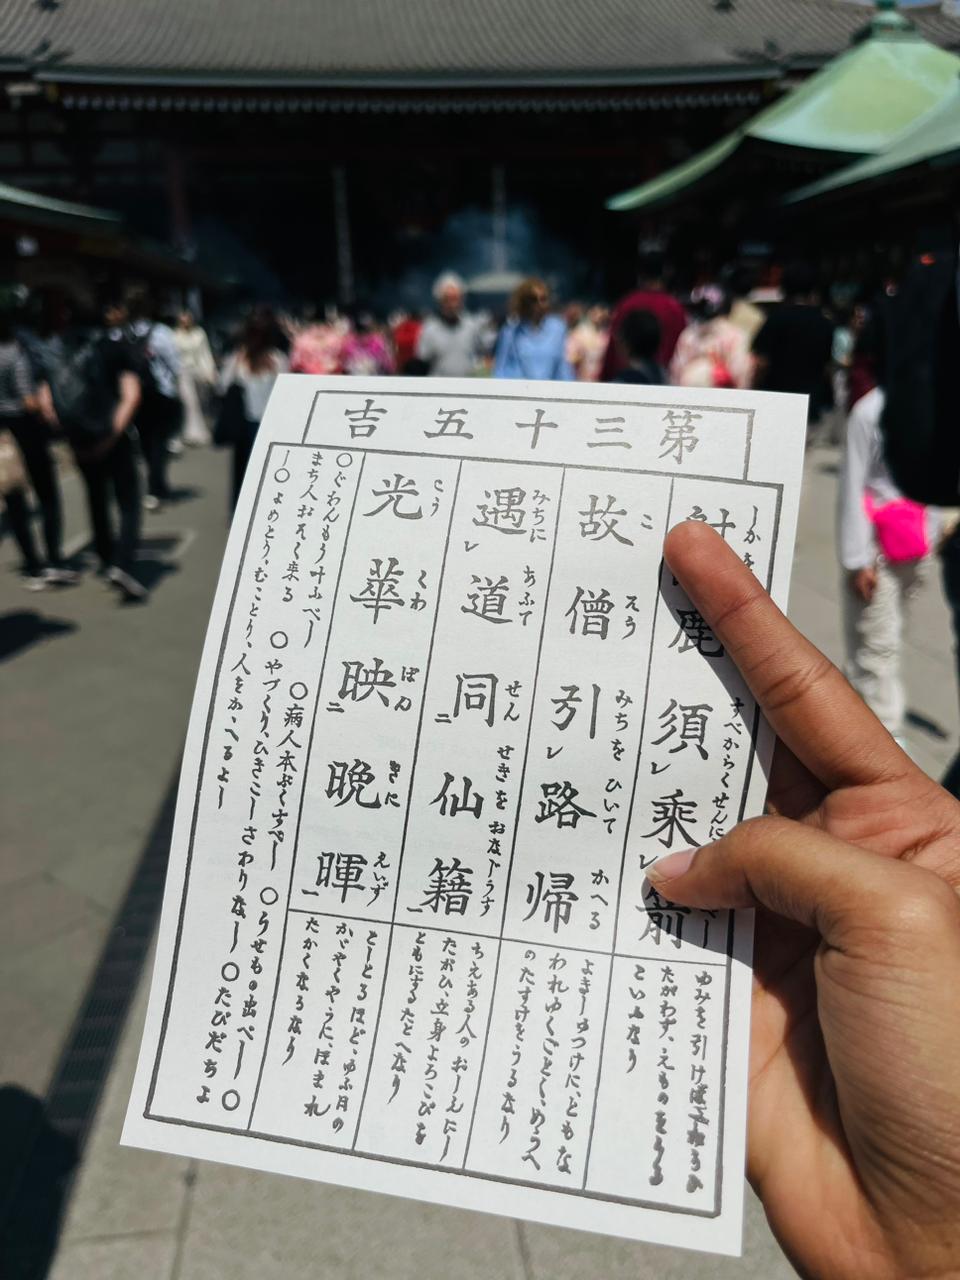 第三十五吉
しかを すべからくせんに
鹿須レ乗レ箭
ゆみを引けば
たがわず、えものをとりう
といふなり
こ そう みちを ひいて かへる
故僧引レ路帰
よき一ゆつけに、ともな
われゆくごとく、めうへ
のたすけをうるなり
みちに あふて せん せきを おなじうす
遇レ道同二仙籍一
ちえある人のおしえにし
たがひ、立身よろこびを
ともにするたとへなり
こう くわ ばん きに えいず
光華映二晩暉一
とーとろほど、ゆふ月の
かゞやくやうに、ほまれ
たかくなるなり
○ぐわんもう叶ふべし ○病人本ぶくすべし ○うせもの出べし ○
まち人おそく来る ○やづくり、ひきこしさわりなし ○たびだちよ
し○よめとり、むことり、人をかゝへるよし